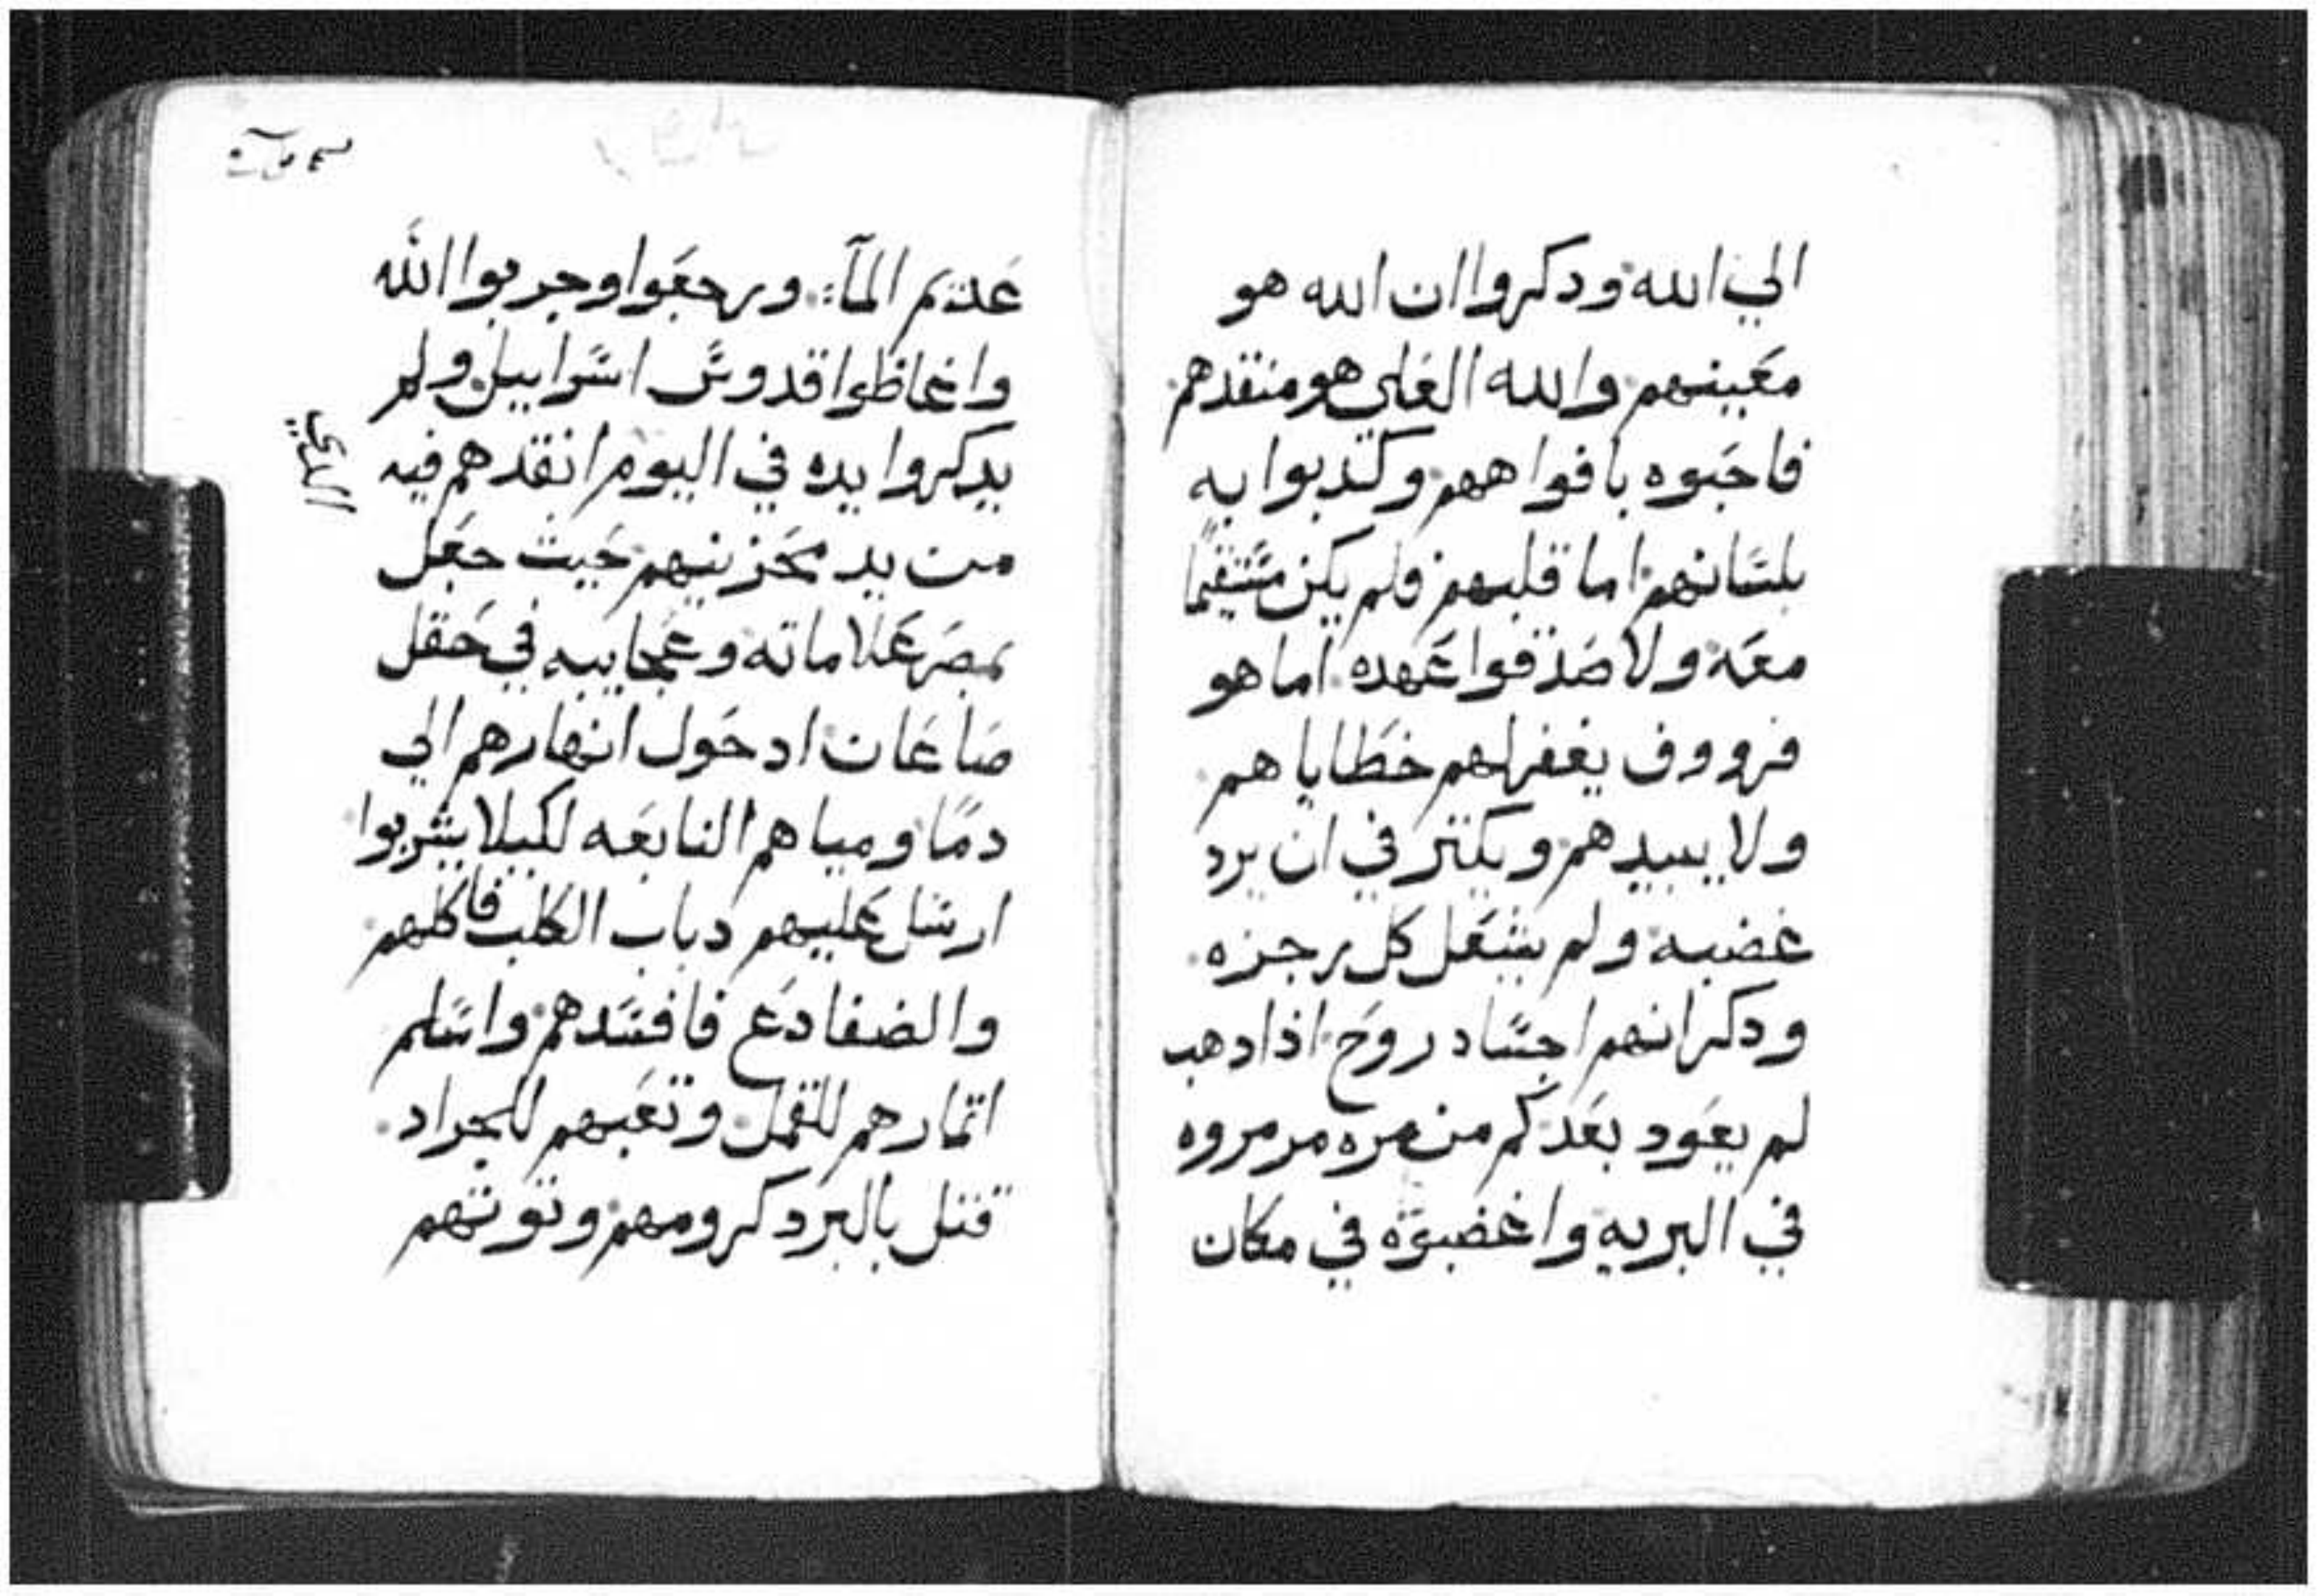 الي الله ودكروا ان الله هو
معينهم والله العلي هو منقدهم
فاحبوه بافواههم وكدبوا به
بلسانهم اما قلبهم فلم يكن مستقيمًا
معه ولا صدقوا عهده اما هو
فرووف يغفر لهم خطاياهم
ولا يبيدهم ويكتر في ان يرد
غضبه ولم يشعل كل رجزه
ودكر انهم اجساد روح اذا دهب
لم يعود بعد كم من مره مرمروه
في البريه واغضبوه في مكان
عديم المآء ورجعوا وجربوا الله
واغاظوا قدوس اسراييل ولم
يدكروا يده في اليوم انقدهم فيه
الدي
من يد محزنيهم حيت جعل
بمصر علاماته وعجايبه في حقل
صاعان اد حول انهارهم الي
دمًا ومياهم النابعه لكيلا يشربوا
ارسل عليهم دباب الكلب فاكلهم
والضفادع فافسدهم واسلم
اتمارهم للقمل وتعبهم للجراد
قتل بالبرد كرومهم وتوتهم